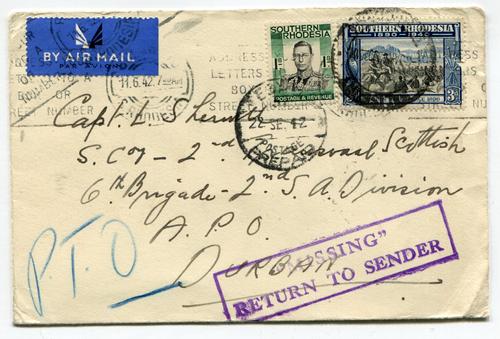 BY AIR MAIL
PAR AVION
11.6.42.
LETTERS
STREET
OR
NUMBER
SOUTHERN
RHODESIA
1d 1d
POSTAGE & REVENUE
SOUTHERN RHODESIA
1890 - 1940
3d
22 SE 42
POSTAGE
PREPAID
Capt. L. Sherwell
S. Coy - 2nd Scottish
6th Brigade - 2nd S. A Division
A. P. O.
DURBAN
P. T. O
"MISSING"
RETURN TO SENDER